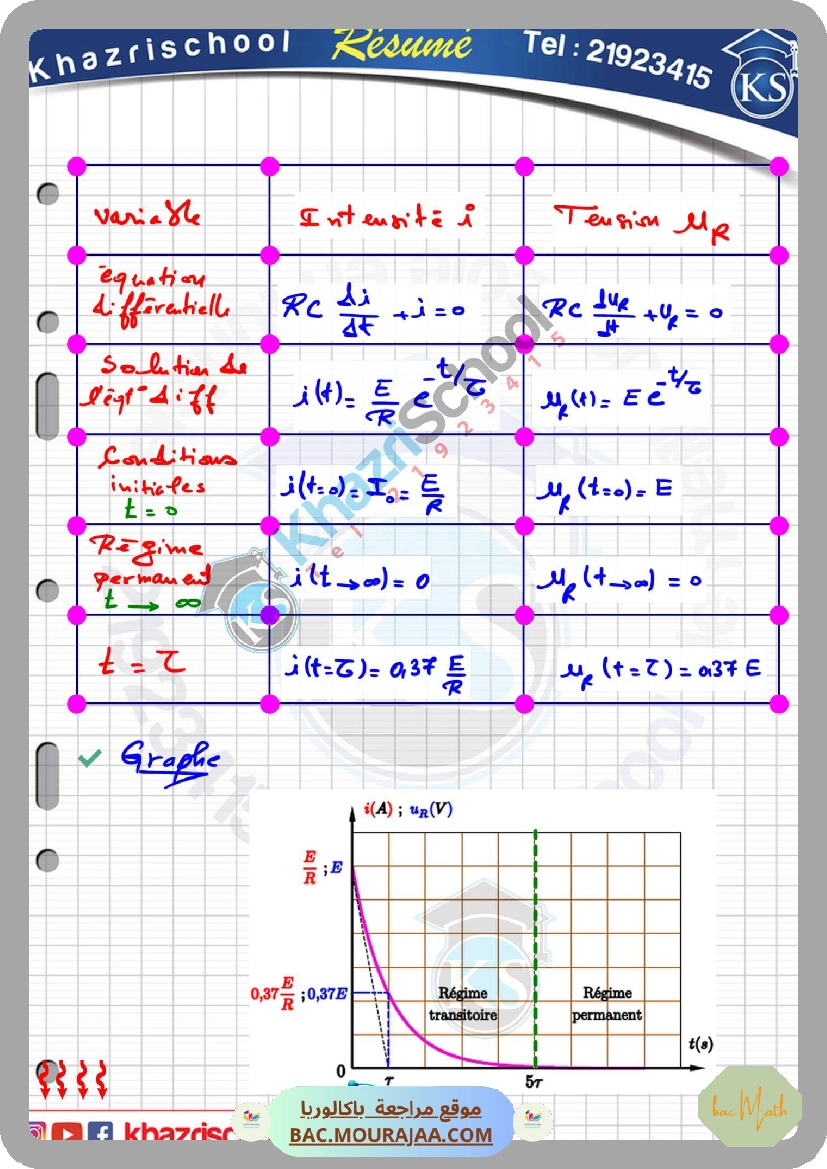 Khazrischool Résumé Tel : 21923415
KS
variable Intensité i Tension uR
équation
différentielle RC di/dt + i = 0 RC duR/dt + uR = 0
Solution de
l'éqt° diff i(t) = E/R e^-t/τ uR(t) = E e^-t/τ
Conditions
initiales i(t=0) = I₀ = E/R uR(t=0) = E
t = 0
Régime
permanent i(t→∞) = 0 uR(t→∞) = 0
t → ∞
t = τ i(t=τ) = 0,37 E/R uR(t=τ) = 0,37 E
KhazriSchool
Tel 21923415
KS
Graphe
i(A) ; uR(V)
E/R ; E
0,37 E/R ; 0,37E
Régime
transitoire
Régime
permanent
t(s)
0 τ 5τ
موقع مراجعة باكالوريا
BAC.MOURAJAA.COM
bac Math
khazrisc